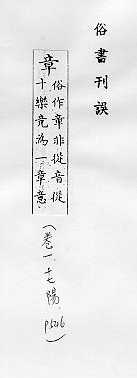 俗書刊誤
章
俗作章非從音從
十樂竟為一章意
(卷一.十七陽.
P.546)